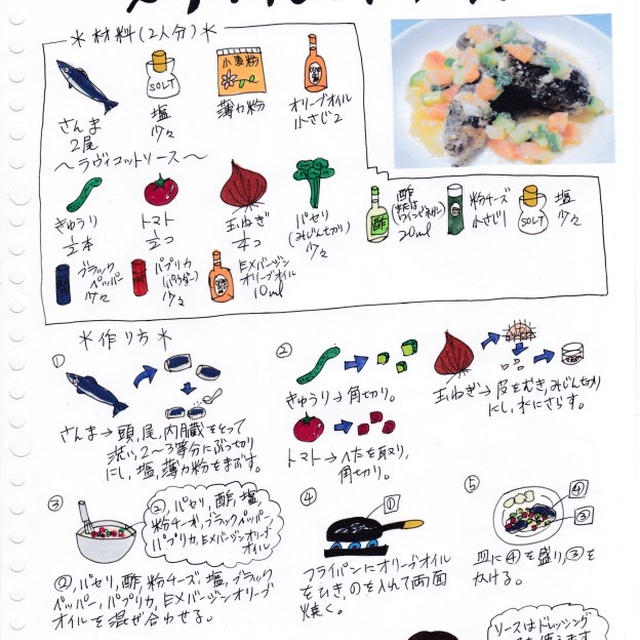 ＊材料(2人分)＊
さんま
2尾
SOLT
塩
少々
小麦粉
薄力粉
オリーブオイル
小さじ2
〜ラヴィゴットソース〜
きゅうり
½本
トマト
½コ
玉ねぎ
パセリ
(みじん切り)
少々
酢
酢
20ml
粉チーズ
小さじ1
SOLT
塩
少々
ブラック
ペッパー
少々
パプリカ
(パウダー)
少々
EXバージン
オリーブオイル
10ml
＊作り方＊
①
さんま→頭,尾,内臓をとって
洗い,2〜3等分にぶつ切り
にし,塩,薄力粉をまぶす。
②
きゅうり→角切り。
トマト→ヘたを取り,
角切り。
玉ねぎ→皮をむき,みじん切り
にし,水にさらす。
③
②,パセリ,酢,塩,
粉チーズ,ブラックペッパー
パプリカ,EXバージンオリーブ
オイル
②,パセリ,酢,粉チーズ,塩,ブラック
ペッパー,パプリカ,EXバージンオリーブ
オイルを混ぜ合わせる。
④
①
フライパンにオリーブオイル
をひき,①を入れて両面
焼く。
⑤
④
③
皿に④を盛り,③を
かける。
ソースはドレッシング